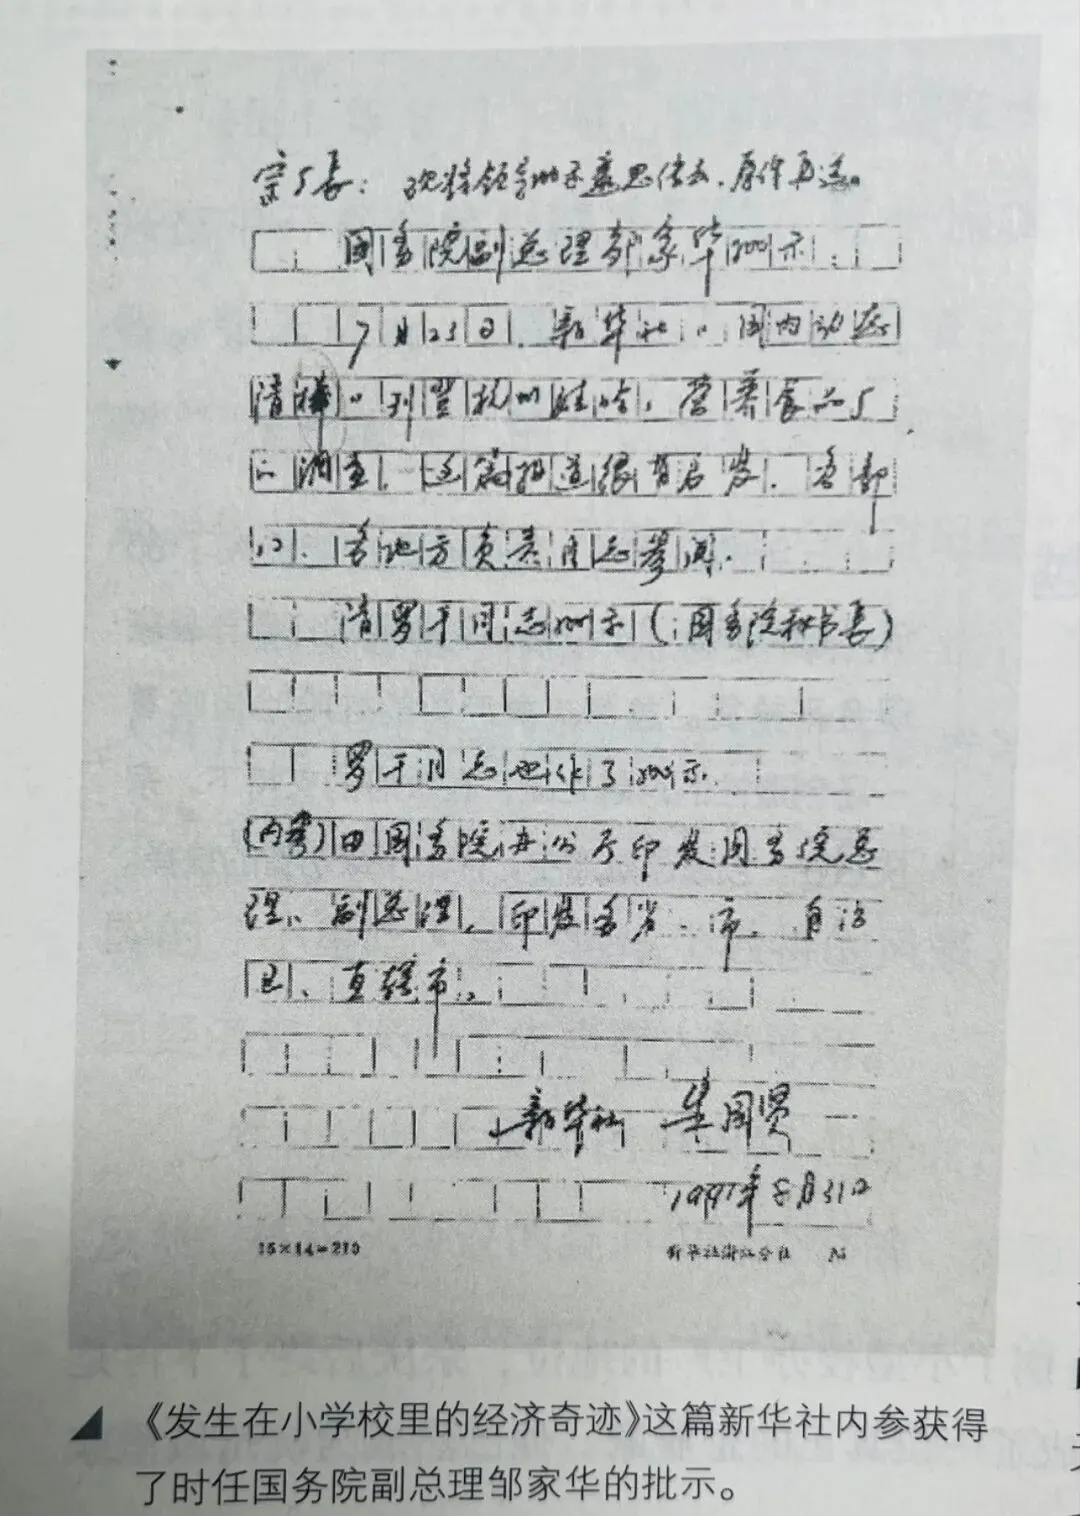 宗厂长：现将领导批示意思传去，原件再送。
国务院副总理邹家华批示：
7月25日，新华社《国内动态
清样》刊登杭州娃哈哈营养食品厂
的调查，这篇报道很有启发，各部
门、各地方负责同志参阅。
请罗干同志批示（国务院秘书长）
罗干同志也作了批示。
（内参）由国务院办公厅印发国务院总
理、副总理，印发各省、市、自治
区、直辖市。
新华社 朱国贤
1991年8月31日
15×14=210
新华社浙江分社
《发生在小学校里的经济奇迹》这篇新华社内参获得
了时任国务院副总理邹家华的批示。